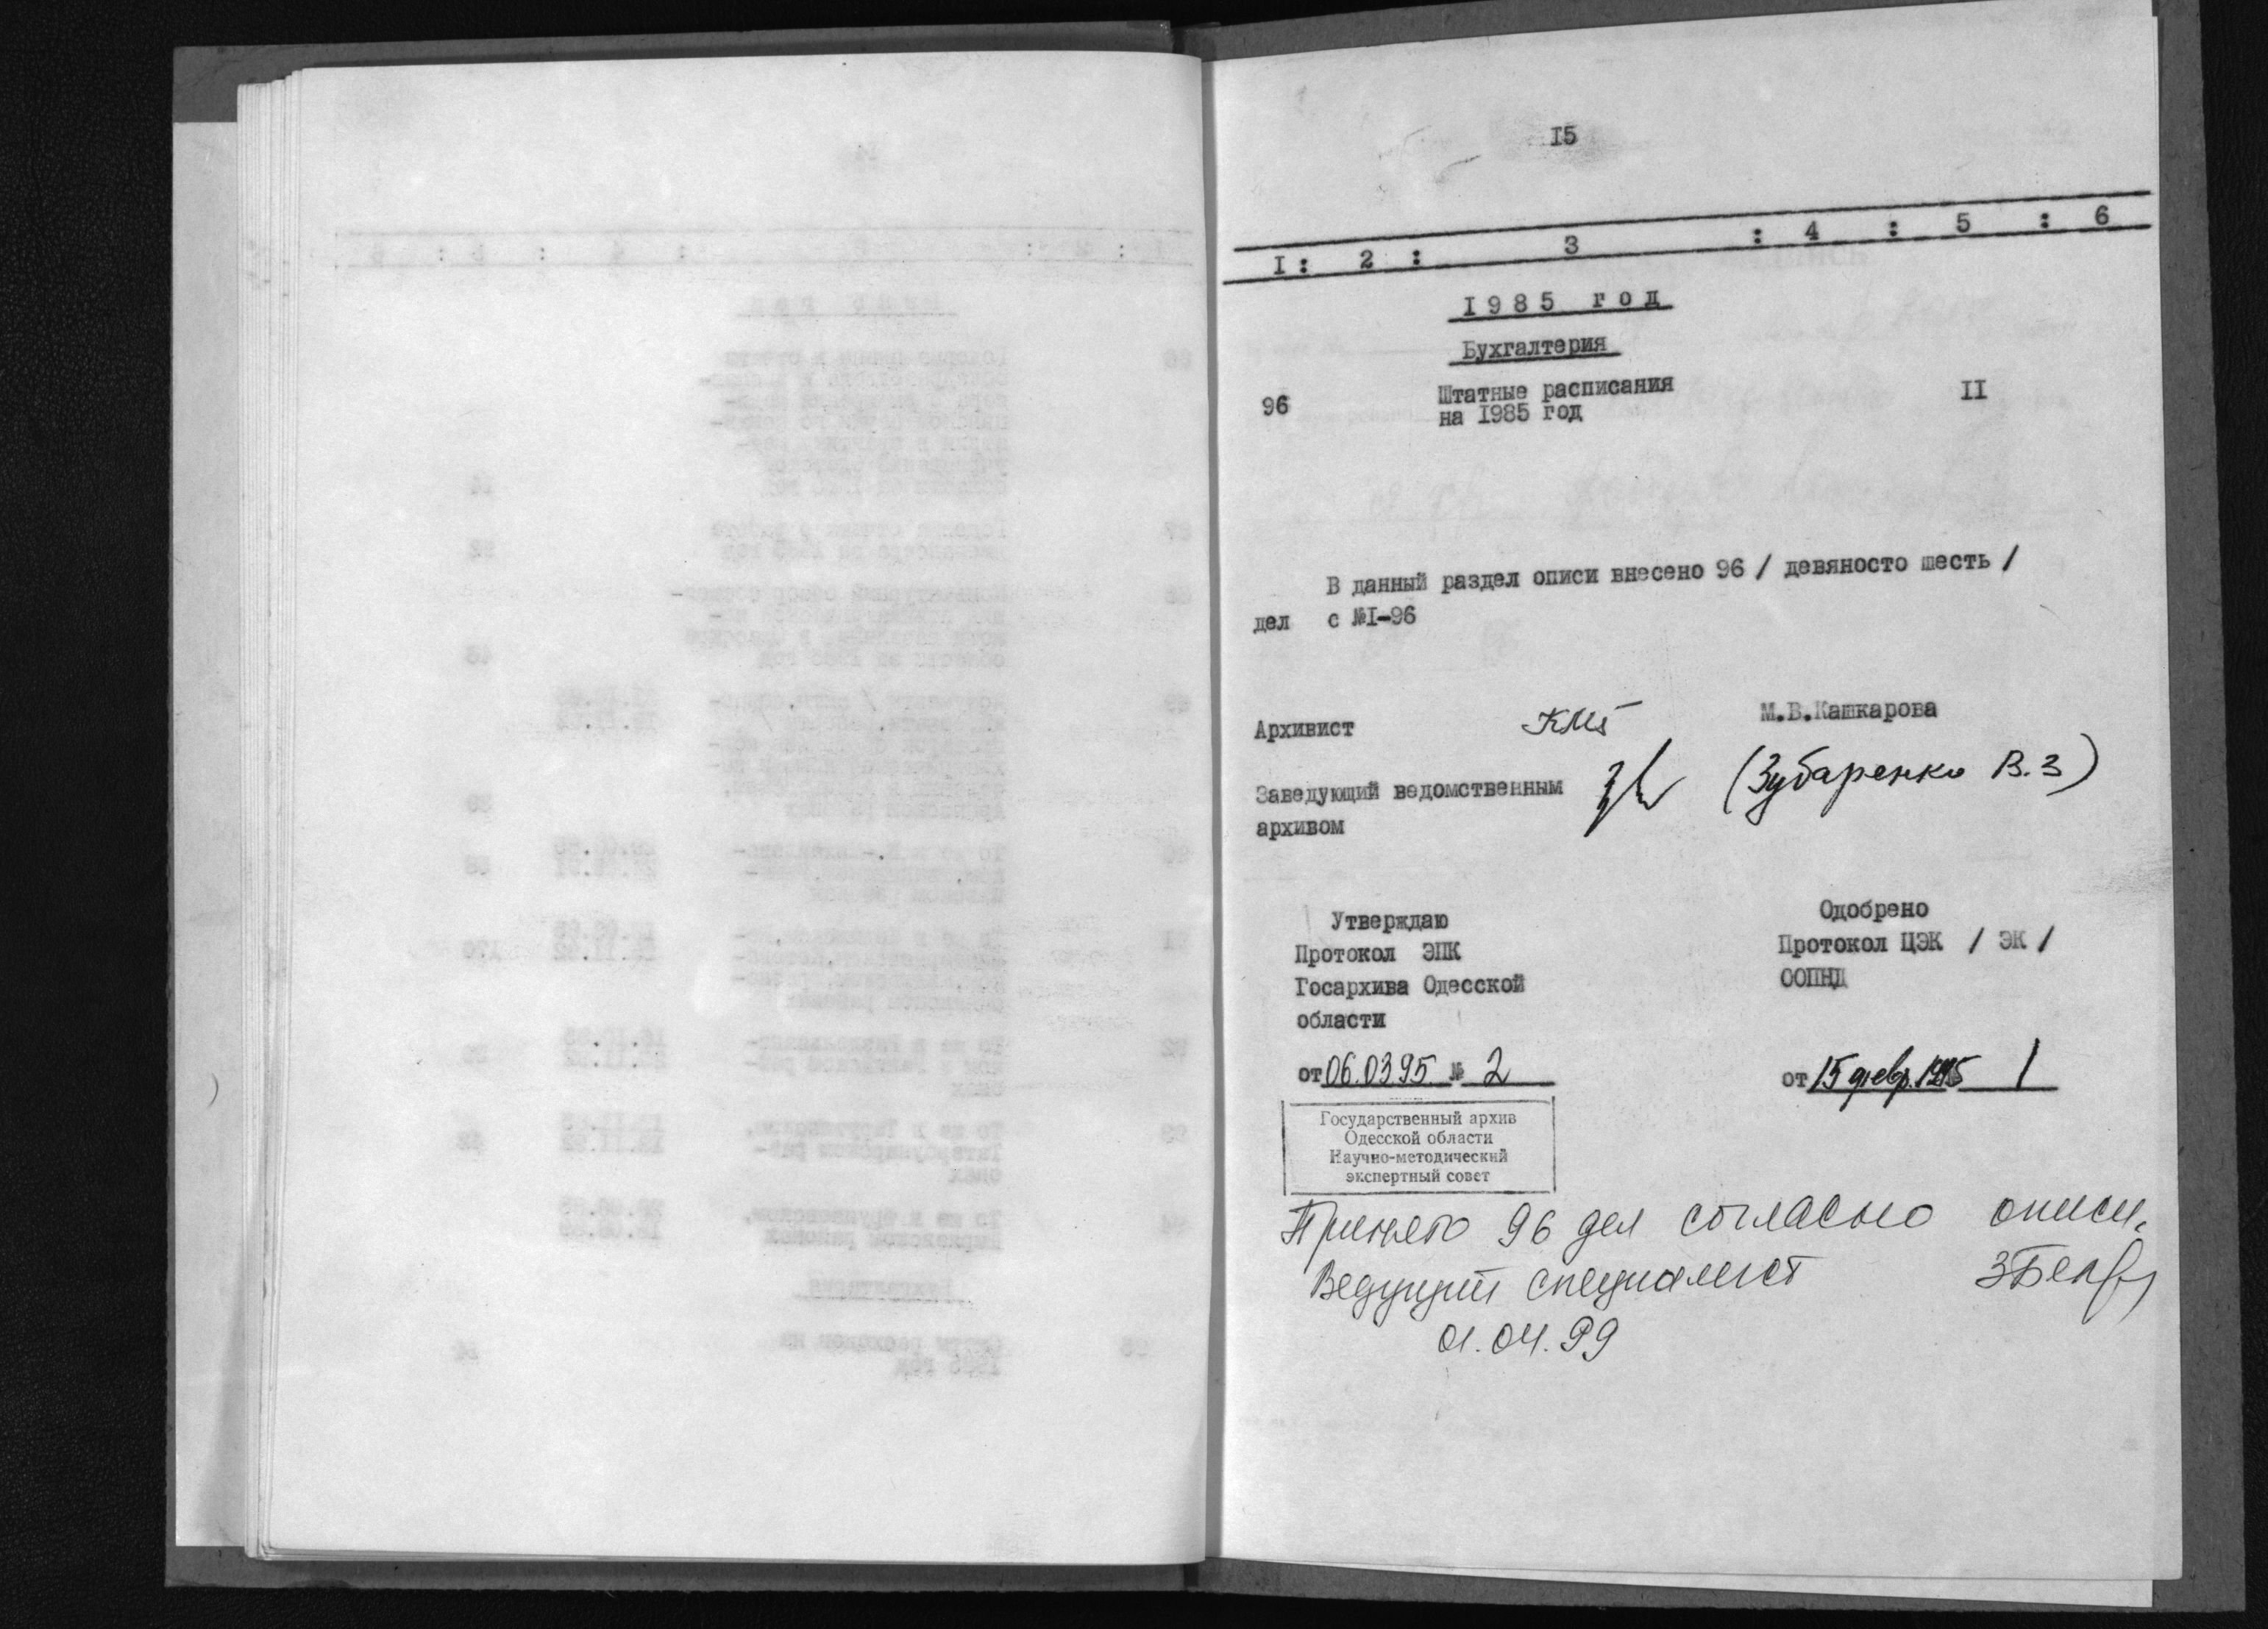 15
I : 2 : 3 : 4 : 5 : 6
1985 год
Бухгалтерия
96 Штатные расписания II
на 1985 год
В данный раздел описи внесено 96 / девяносто шесть /
дел с №I-96
Архивист М.В.Кашкарова
Заведующий ведомственным (Зубаренко В.З)
архивом
Утверждаю
Протокол ЭПК
Госархива Одесской
области
от 06.0395 № 2
Одобрено
Протокол ЦЭК / ЭК /
ООПНД
от 15 февр. 1995 1
Государственный архив
Одесской области
Научно-методический
экспертный совет
Принято 96 дел согласно описи.
Ведущий специалист
01.04.99